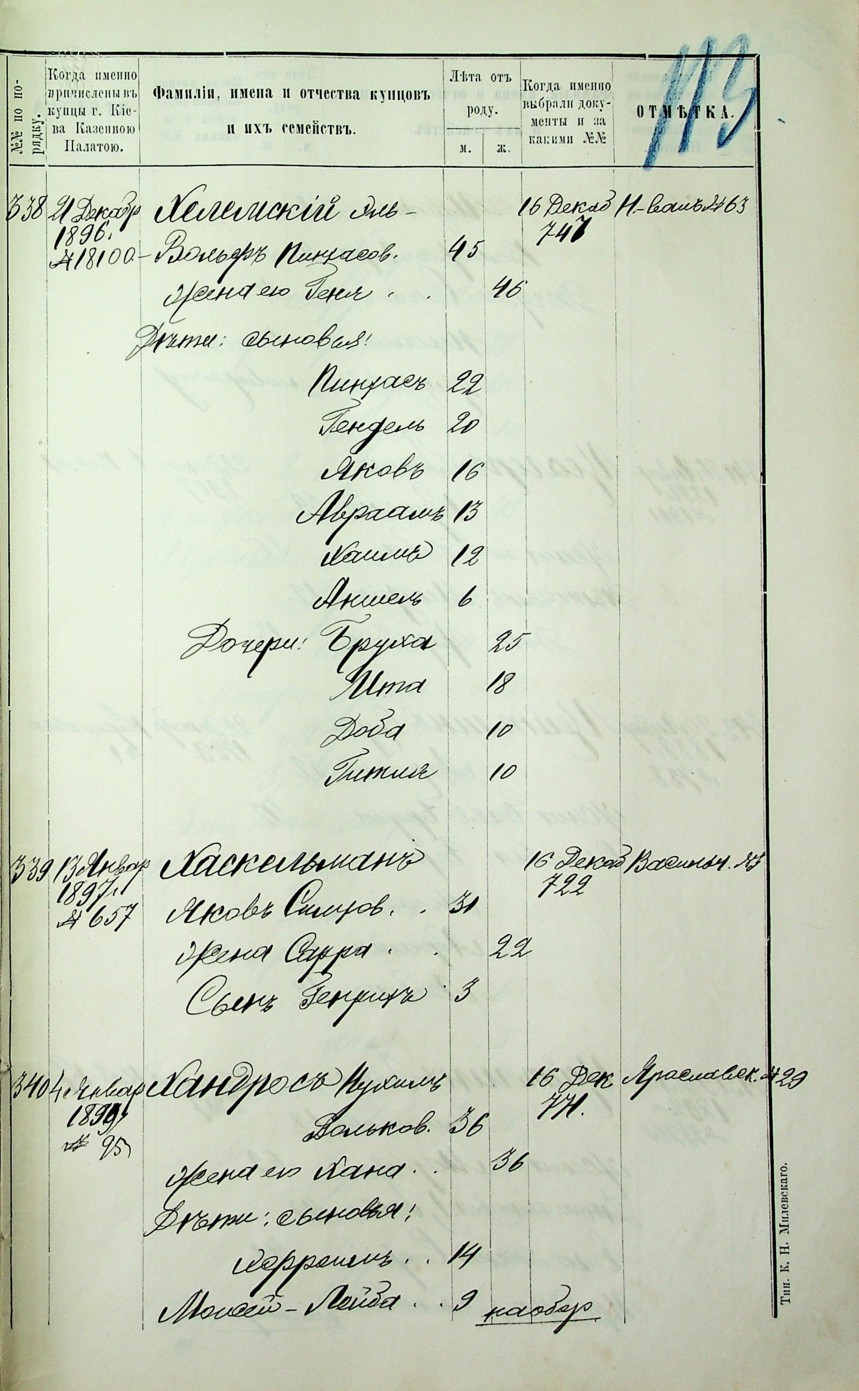 113
№№ по по-
рядку.
Когда именно
причислены въ
купцы г. Кіе-
ва Казенною
Палатою.
Фамиліи, имена и отчества купцовъ
и ихъ семействъ.
Лѣта отъ
роду.
м. ж.
Когда именно
выбрали доку-
менты и за
какими №№
ОТМѢТКА.
338 21 Декабр Хелемскій Эль- 16 Декаб
1896. 747
№ 18100 - Вольфъ Пинхасов. 45
Жена его Геня . . 46
Дѣти: сыновья:
Пинхасъ 22
Гендель 20
Яковъ 16
Авраамъ 13
Хаимъ 12
Аншель 6
Дочери: Бруха 25
Ита 18
Доба 10
Гитля 10
339 13 Январ Хаскельманъ 16 Декаб
1897. 722
№ 657 Яковъ . . 31
Жена Сарра . . 22
Сынъ Генрихъ 3
340 4 Январ Хандросъ 16 Дек Ярославск. № 29
189 771.
№ 95 Вольков. 36
Жена его Хана . . 36
Дѣти: сыновья:
. . 14
Моисей-Лейба . . 9 наобор
Тип. К. Н. Милевскаго.